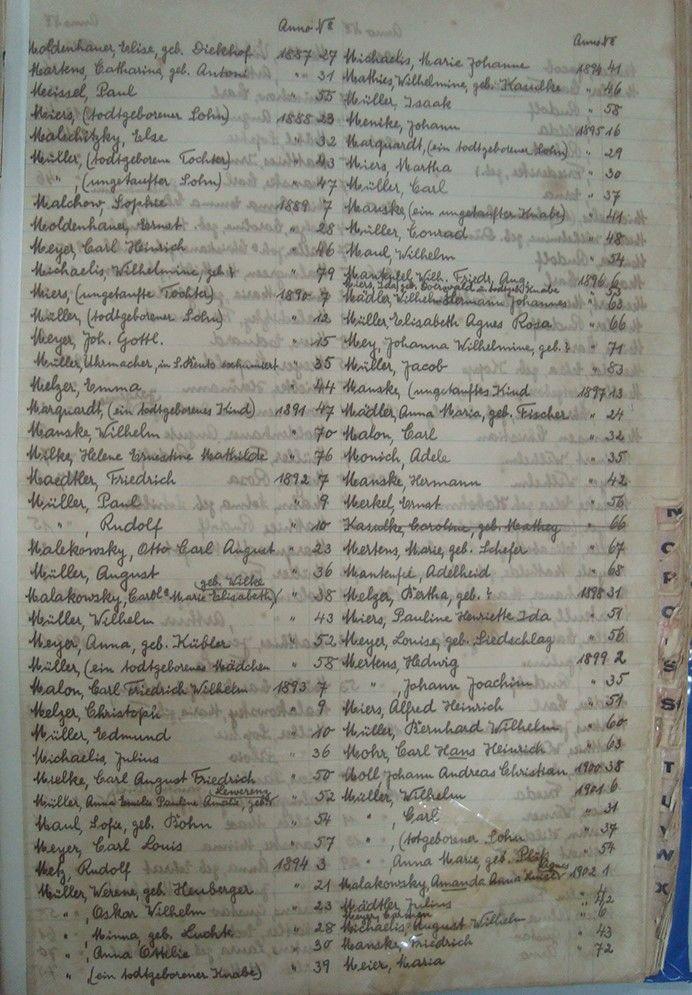 Anno No
Moldenhauer, Elise, geb. Diekhof 1887 27
Martens, Catharina, geb. Antoni " 31
Meissel, Paul " 55
Meiers, (todtgeborener Sohn) 1888 23
Malschitzky, Else " 32
Müller, (todtgeborene Tochter) " 43
" , (ungetaufter Sohn) " 47
Malchow, Sophie 1889 7
Moldenhauer, Ernst " 28
Meyer, Carl Heinrich " 46
Michaelis, Wilhelmine, geb. ? " 79
Miers, (ungetaufte Tochter) 1890 7
Müller, (todtgeborener Sohn) " 12
Meyer, Joh. Gottl. " 15
Müller, Uhrmacher, in S. Bento exhumiert " 35
Melzer, Emma " 44
Marquardt, (ein todtgeborenes Kind) 1891 47
Manske, Wilhelm " 70
Milke, Helene Ernestine Mathilde " 76
Maedtler, Friedrich 1892 7
Müller, Paul " 9
" , Rudolf " 10
Malekowsky, Otto Carl August " 23
Müller, August " 36
geb. Wilke
Malakowsky, Carol. Marie Elisabeth) " 38
Müller, Wilhelm " 43
Meyer, Anna, geb. Kübler " 52
Müller, (ein todtgeborenes Mädchen " 58
Malon, Carl Friedrich Wilhelm 1893 7
Melzer, Christoph " 9
Müller, Edmund " 10
Michaelis, Julius " 36
Mielke, Carl August Friedrich " 50
Lewerenz
Müller, Anna Emilie Pauline Amalie, geb. " 52
Maul, Sofie, geb. Bohn " 54
Meyer, Carl Louis " 57
Metz, Rudolf 1894 3
Müller Werene, geb. Heuberger " 21
" , Oskar Wilhelm " 23
" , Minna, geb. Luchk " 28
" , Anna Ottilie " 30
" , (ein todtgeborener Knabe) " 39
Anno No
Michaelis, Marie Johanne 1894 41
Mathies, Wilhelmine, geb. Kasulke " 46
Müller, Isaak " 58
Menike, Johann 1895 16
Marquardt, (ein todtgeborener Sohn) " 29
Miers, Martha " 30
Müller, Carl " 37
Manske, (ein ungetaufter Knabe) " 41
Müller, Conrad " 48
Maul, Wilhelm " 54
Manteufel, Wilh. Friedr. Aug. 1896 6
Miers, Ida, geb. u. todtgeb. Knabe " 53
Mädler, Wilhelm Hermann Johannes " 63
Müller, Elisabeth Agnes Rosa " 66
Mey, Johanna Wilhelmine, geb. ? " 71
Müller, Jacob " 83
Manske, (ungetauftes Kind 1897 13
Mädler, Anna Maria, geb. Fischer " 24
Malon, Carl " 32
Monich, Adele " 35
Manske, Hermann " 42
Merkel, Ernst " 56
Kasulke, Caroline, geb. Mathey " 66
Mertens, Marie, geb. Schefer " 67
Manteufel, Adelheid " 68
Melzer, Bertha, geb. ? 1898 31
Miers, Pauline Henriette Ida " 51
Meyer, Louise, geb. Liedschlag " 56
Mertens, Hedwig 1899 2
" , Johann Joachim " 35
Miers, Alfred Heinrich " 51
Müller, Bernhard Wilhelm " 60
Mohr, Carl Hans Heinrich " 63
Moll Johann Andreas Christian 1900 38
Müller, Wilhelm 1901 6
" , Carl " 31
" , (totgeborener Sohn " 37
" , Anna Marie, geb. " 54
Malakowsky, Amanda Anna 1902 1
Mädtler, Julius " 42
Meyer, " 6
Michaelis, August Wilhelm " 43
Manske, Friedrich " 72
Meier, Maria
N
O
P
Q
S
S
T
U
V
W
X